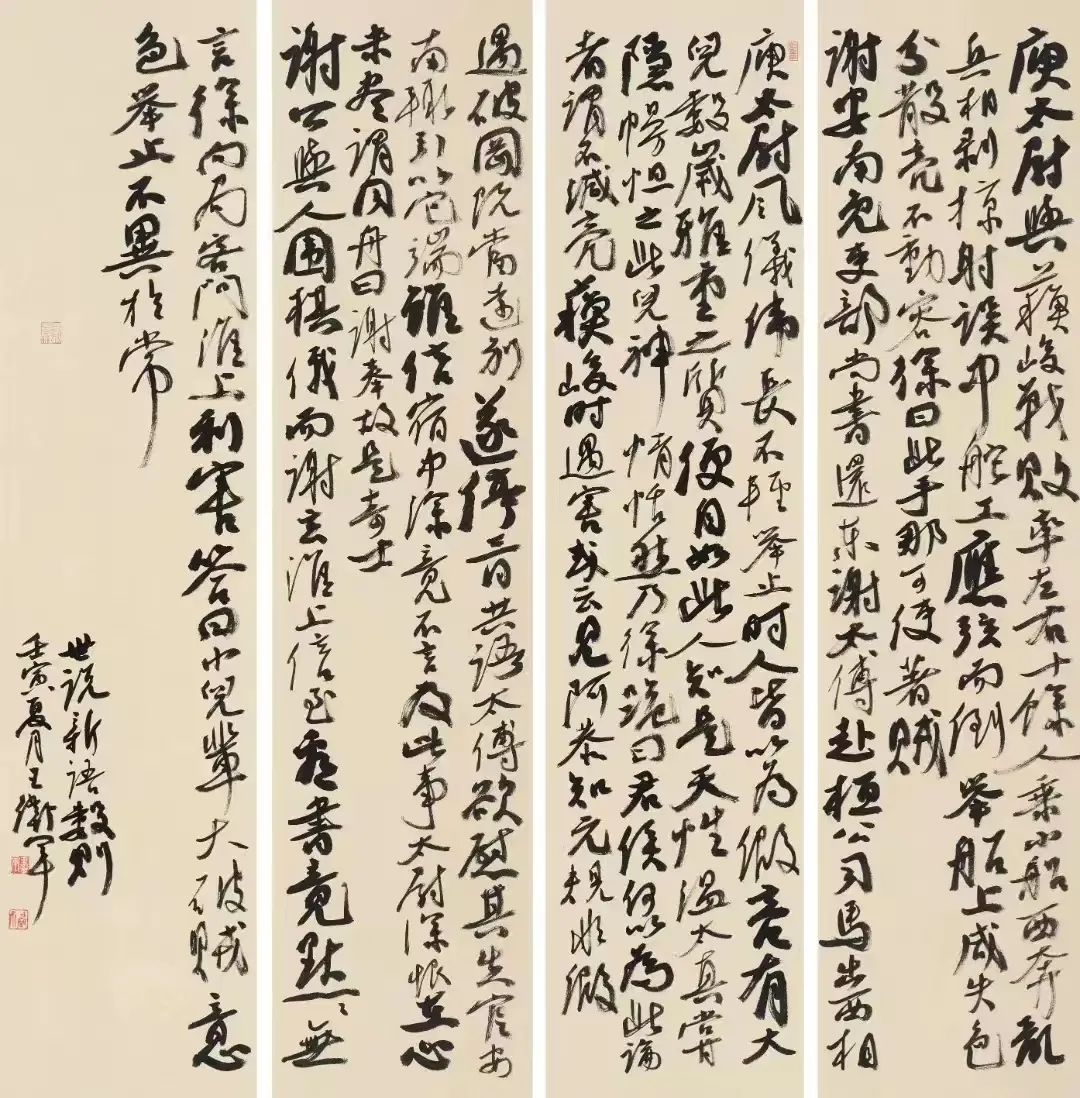 庾太尉與蘇峻戰敗率左右十餘人乘小船西奔亂
兵相剥掠射誤中舵工應弦而倒舉船上咸失色
分散亮不動容徐曰此手那可使著賊
謝安南免吏部尚書還東謝太傅赴桓公司馬出西相
庾太尉風儀偉長不輕舉止時人皆以為假亮有大
兒數歲雅重之質便自如此人知是天性溫太真嘗
隱幔怛之此兒神情恬然乃徐跪曰君侯何以為此論
者謂不減亮蘇峻時遇害或云見阿恭知元規非假
遇破岡既當遠別遂停三日共語太傅欲慰其失官安
南輒引以它端雖信宿中塗竟不言及此事太尉深恨在心
未盡謂同舟曰謝奉故是奇士
謝公與人围棋俄而謝玄淮上信至看書竟默〻無
言徐向局客問淮上利害答曰小兒輩大破賊意
色舉止不異於常
世说新語數則
壬寅夏月王衛軍